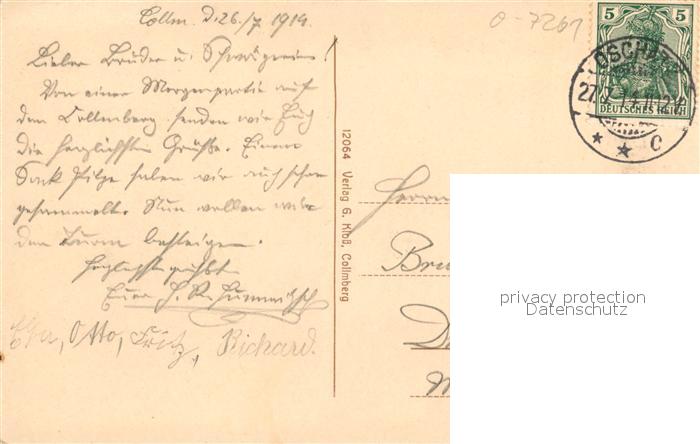 Collm. d. 26./7 1914.
Lieber Bruder u. Schwägerin!
Von einer Morgenpartie auf
dem Collmberg senden wir Euch
die herzlichsten Grüße. Einen
Sack Pilze haben wir auch schon
gesammelt. Nun wollen wir
den Turm besteigen.
Herzlichst grüßt
Euer
Otto, Fritz, Richard.
12064 Verlag G. Kloß, Collmberg
O-7261
5 5
DEUTSCHES REICH
OSCHA
27.7.14 11-12V
* * c
Herrn
privacy protection
Datenschutz